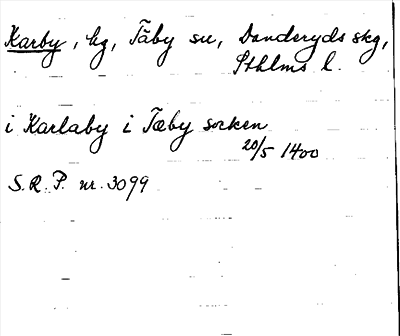 Karby, hg, Täby sn, Danderyds skg,
Sthlms l.
i Karlaby i Tæby socken
20/5 1400
S.R.P. nr. 3099